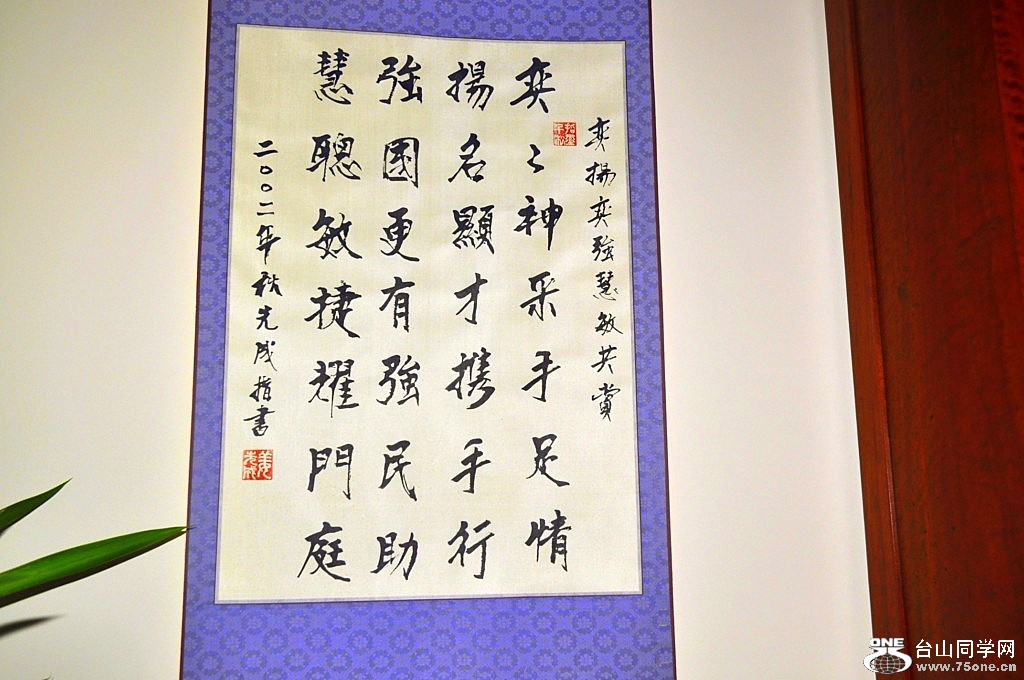 奕揚奕強慧敏共賞
奕〻神采手足情
揚名顯才携手行
強國更有強民助
慧聰敏捷耀門庭
二〇〇二年秋先成指書
ONE
台山同学网
www.75one.cn